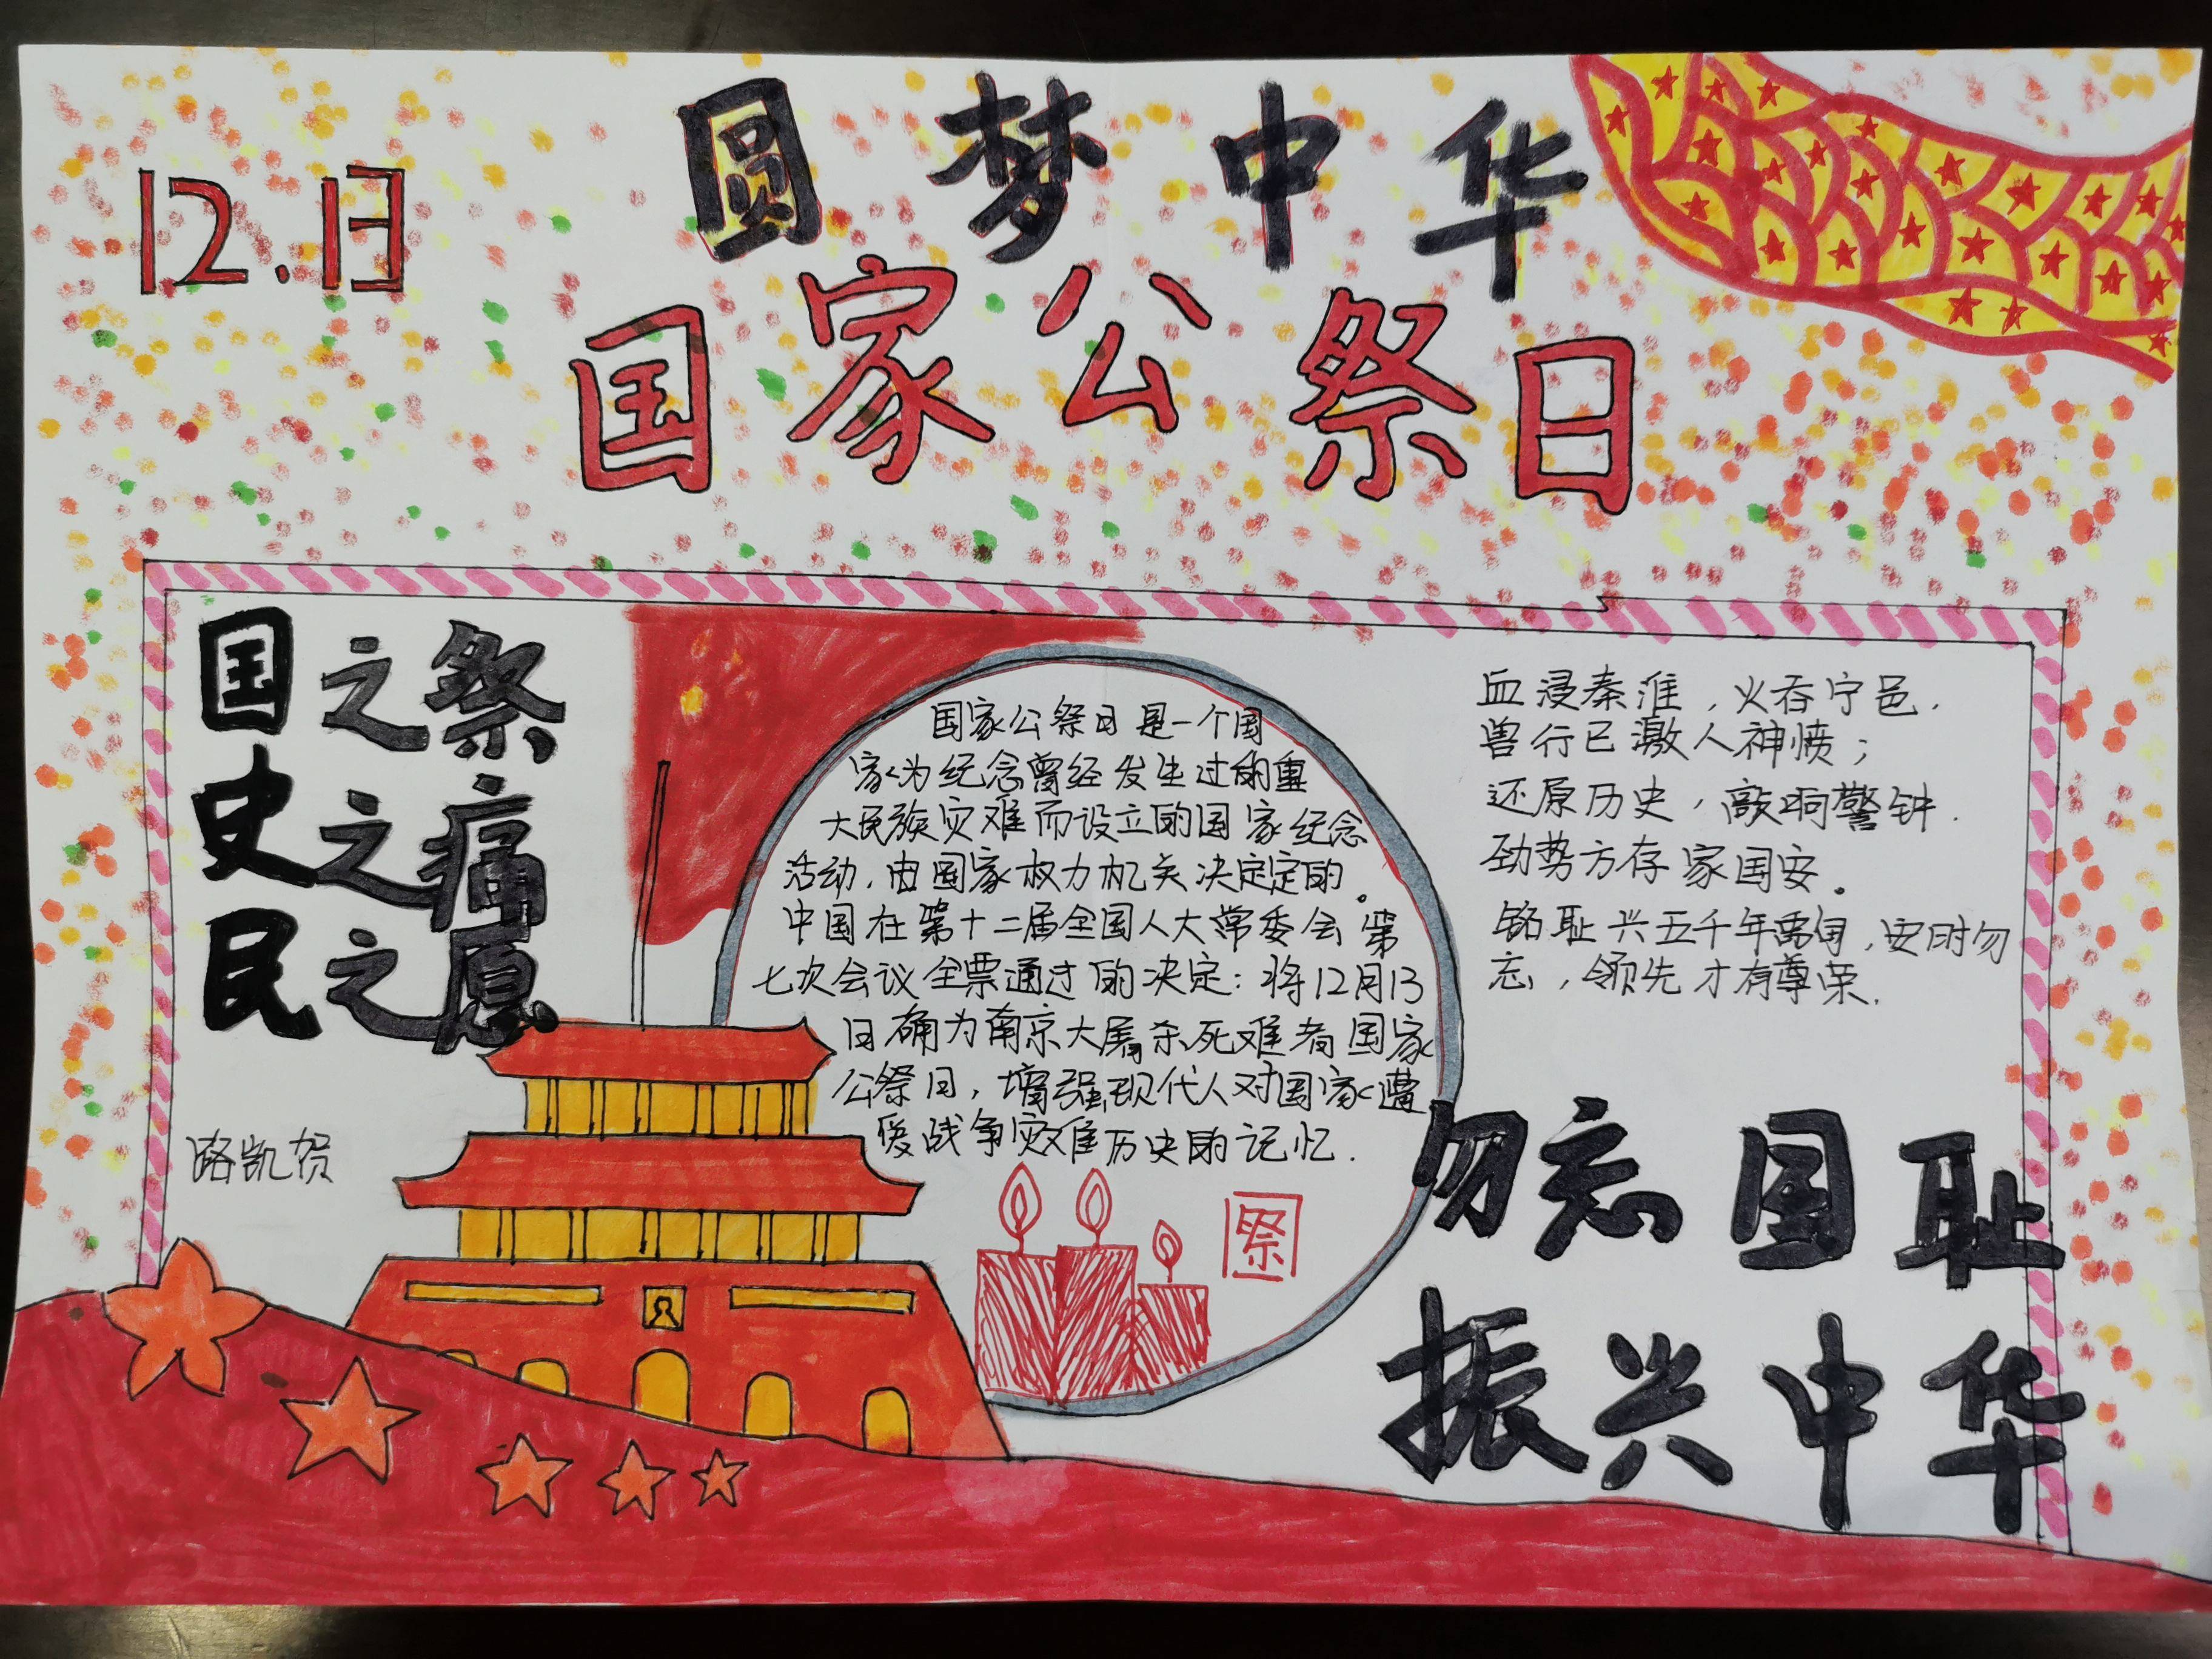 圆梦中华
12.13
国家公祭日
国之祭
史之痛
民之愿
路凯贺
国家公祭日是一个国
家为纪念曾经发生过的重
大民族灾难而设立的国家纪念
活动,由国家权力机关决定定的。
中国在第十二届全国人大常委会第
七次会议全票通过的决定:将12月13
日确为南京大屠杀死难者国家
公祭日,增强现代人对国家遭
受战争灾难历史的记忆.
祭
血浸秦淮,火吞宁邑,
兽行已激人神愤;
还原历史,敲响警钟.
劲势方存家国安。
铭耻兴五千年禹甸,安时勿
忘,领先才有尊荣.
勿忘国耻
振兴中华